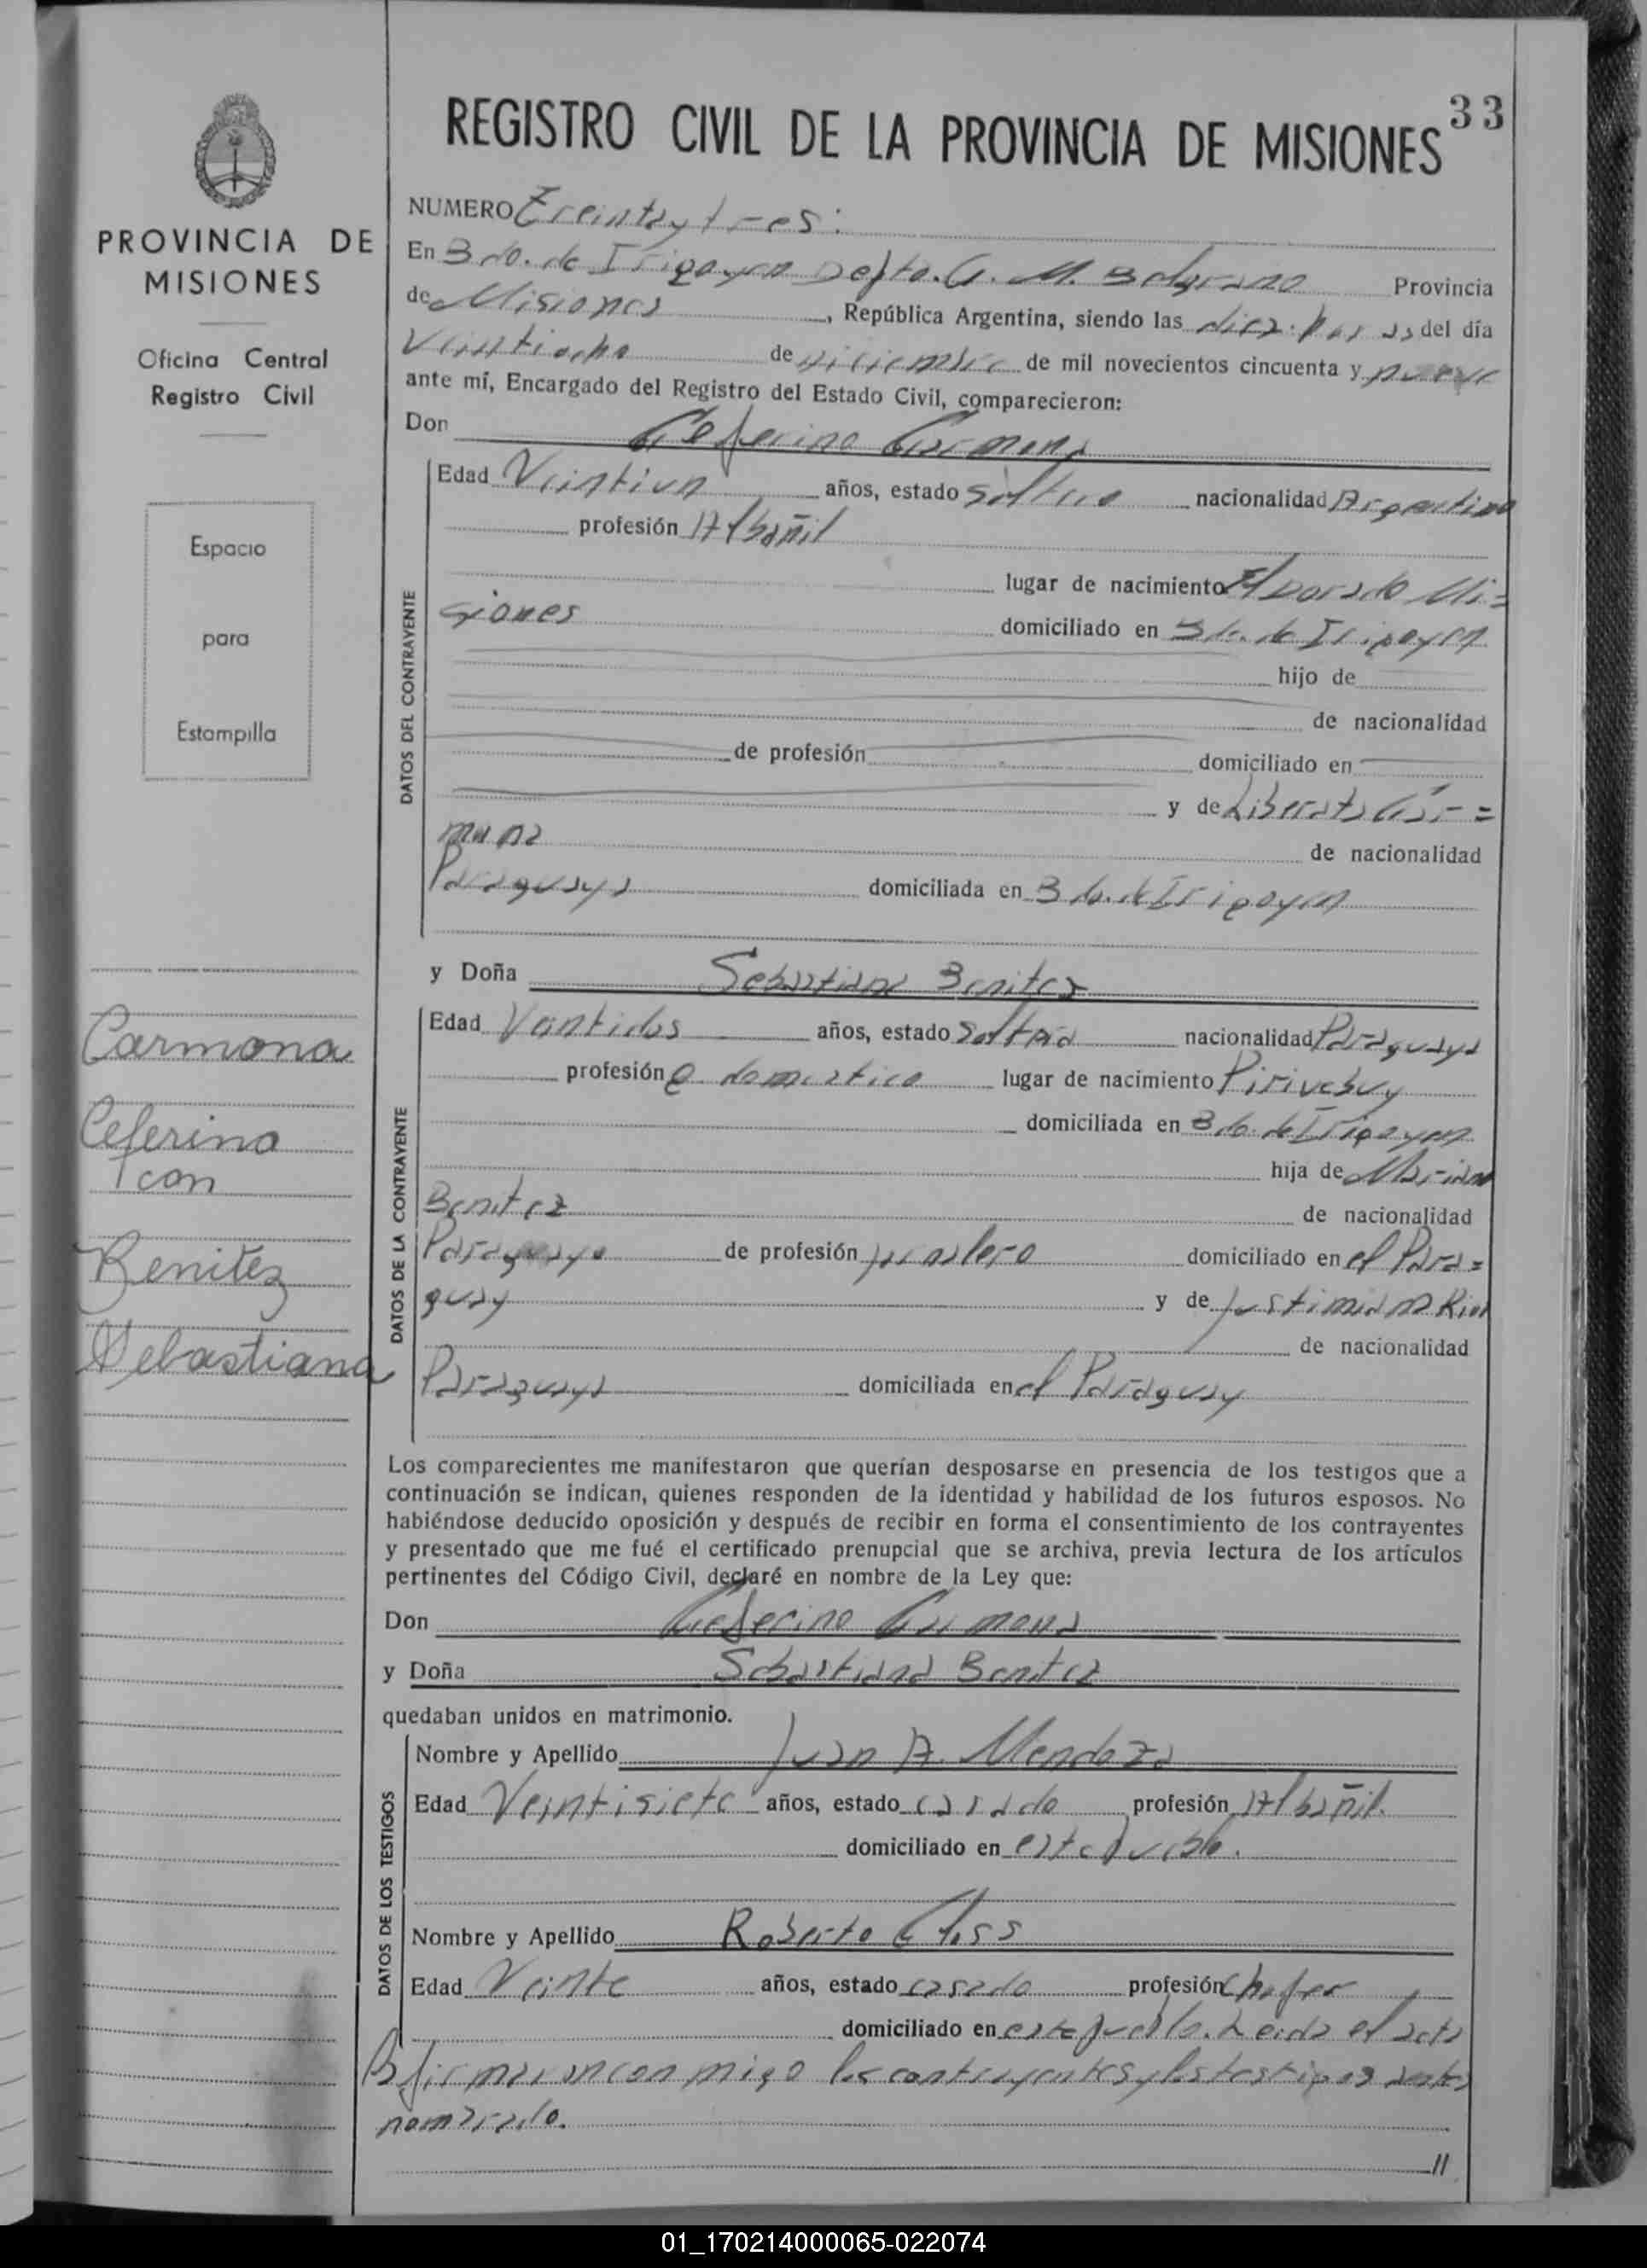 33
REGISTRO CIVIL DE LA PROVINCIA DE MISIONES
PROVINCIA DE
MISIONES
Oficina Central
Registro Civil
Espacio
para
Estampilla
Carmona
Ceferino
con
Benitez
Sebastiana
NUMERO Treintaytres:
En Bdo. de Irigoyen Depto. G. M. Belgrano Provincia
de Misiones, República Argentina, siendo las diez horas del día
Veintiocho de diciembre de mil novecientos cincuenta y nueve
ante mí, Encargado del Registro del Estado Civil, comparecieron:
Don Ceferino Carmona
DATOS DEL CONTRAYENTE
Edad Veintiun años, estado Soltero nacionalidad Argentino
profesión Albañil
lugar de nacimiento El Dorado Mi=
siones domiciliado en Bdo. de Irigoyen
hijo de
de nacionalidad
de profesión domiciliado en
y de Liberata Car=
mona de nacionalidad
Paraguaya domiciliada en Bdo. de Irigoyen
y Doña Sebastiana Benitez
DATOS DE LA CONTRAYENTE
Edad Veintidos años, estado Soltera nacionalidad Paraguaya
profesión q. domestico lugar de nacimiento Pirivebuy
domiciliada en Bdo. de Irigoyen
hija de Mariano
Benitez de nacionalidad
Paraguayo de profesión domiciliado en el Para=
guay y de
de nacionalidad
Paraguaya domiciliada en el Paraguay
Los comparecientes me manifestaron que querían desposarse en presencia de los testigos que a
continuación se indican, quienes responden de la identidad y habilidad de los futuros esposos. No
habiéndose deducido oposición y después de recibir en forma el consentimiento de los contrayentes
y presentado que me fué el certificado prenupcial que se archiva, previa lectura de los artículos
pertinentes del Código Civil, declaré en nombre de la Ley que:
Don Ceferino Carmona
y Doña Sebastiana Benitez
quedaban unidos en matrimonio.
DATOS DE LOS TESTIGOS
Nombre y Apellido Juan A. Mendoza
Edad Veintisiete años, estado casado profesión Albañil.
domiciliado en este pueblo.
Nombre y Apellido Roberto
Edad Veinte años, estado casado profesión Chofer
domiciliado en este pueblo. Leida el acta
la firmaron conmigo los contrayentes y los testigos antes
nombrado.
//
01_170214000065-022074